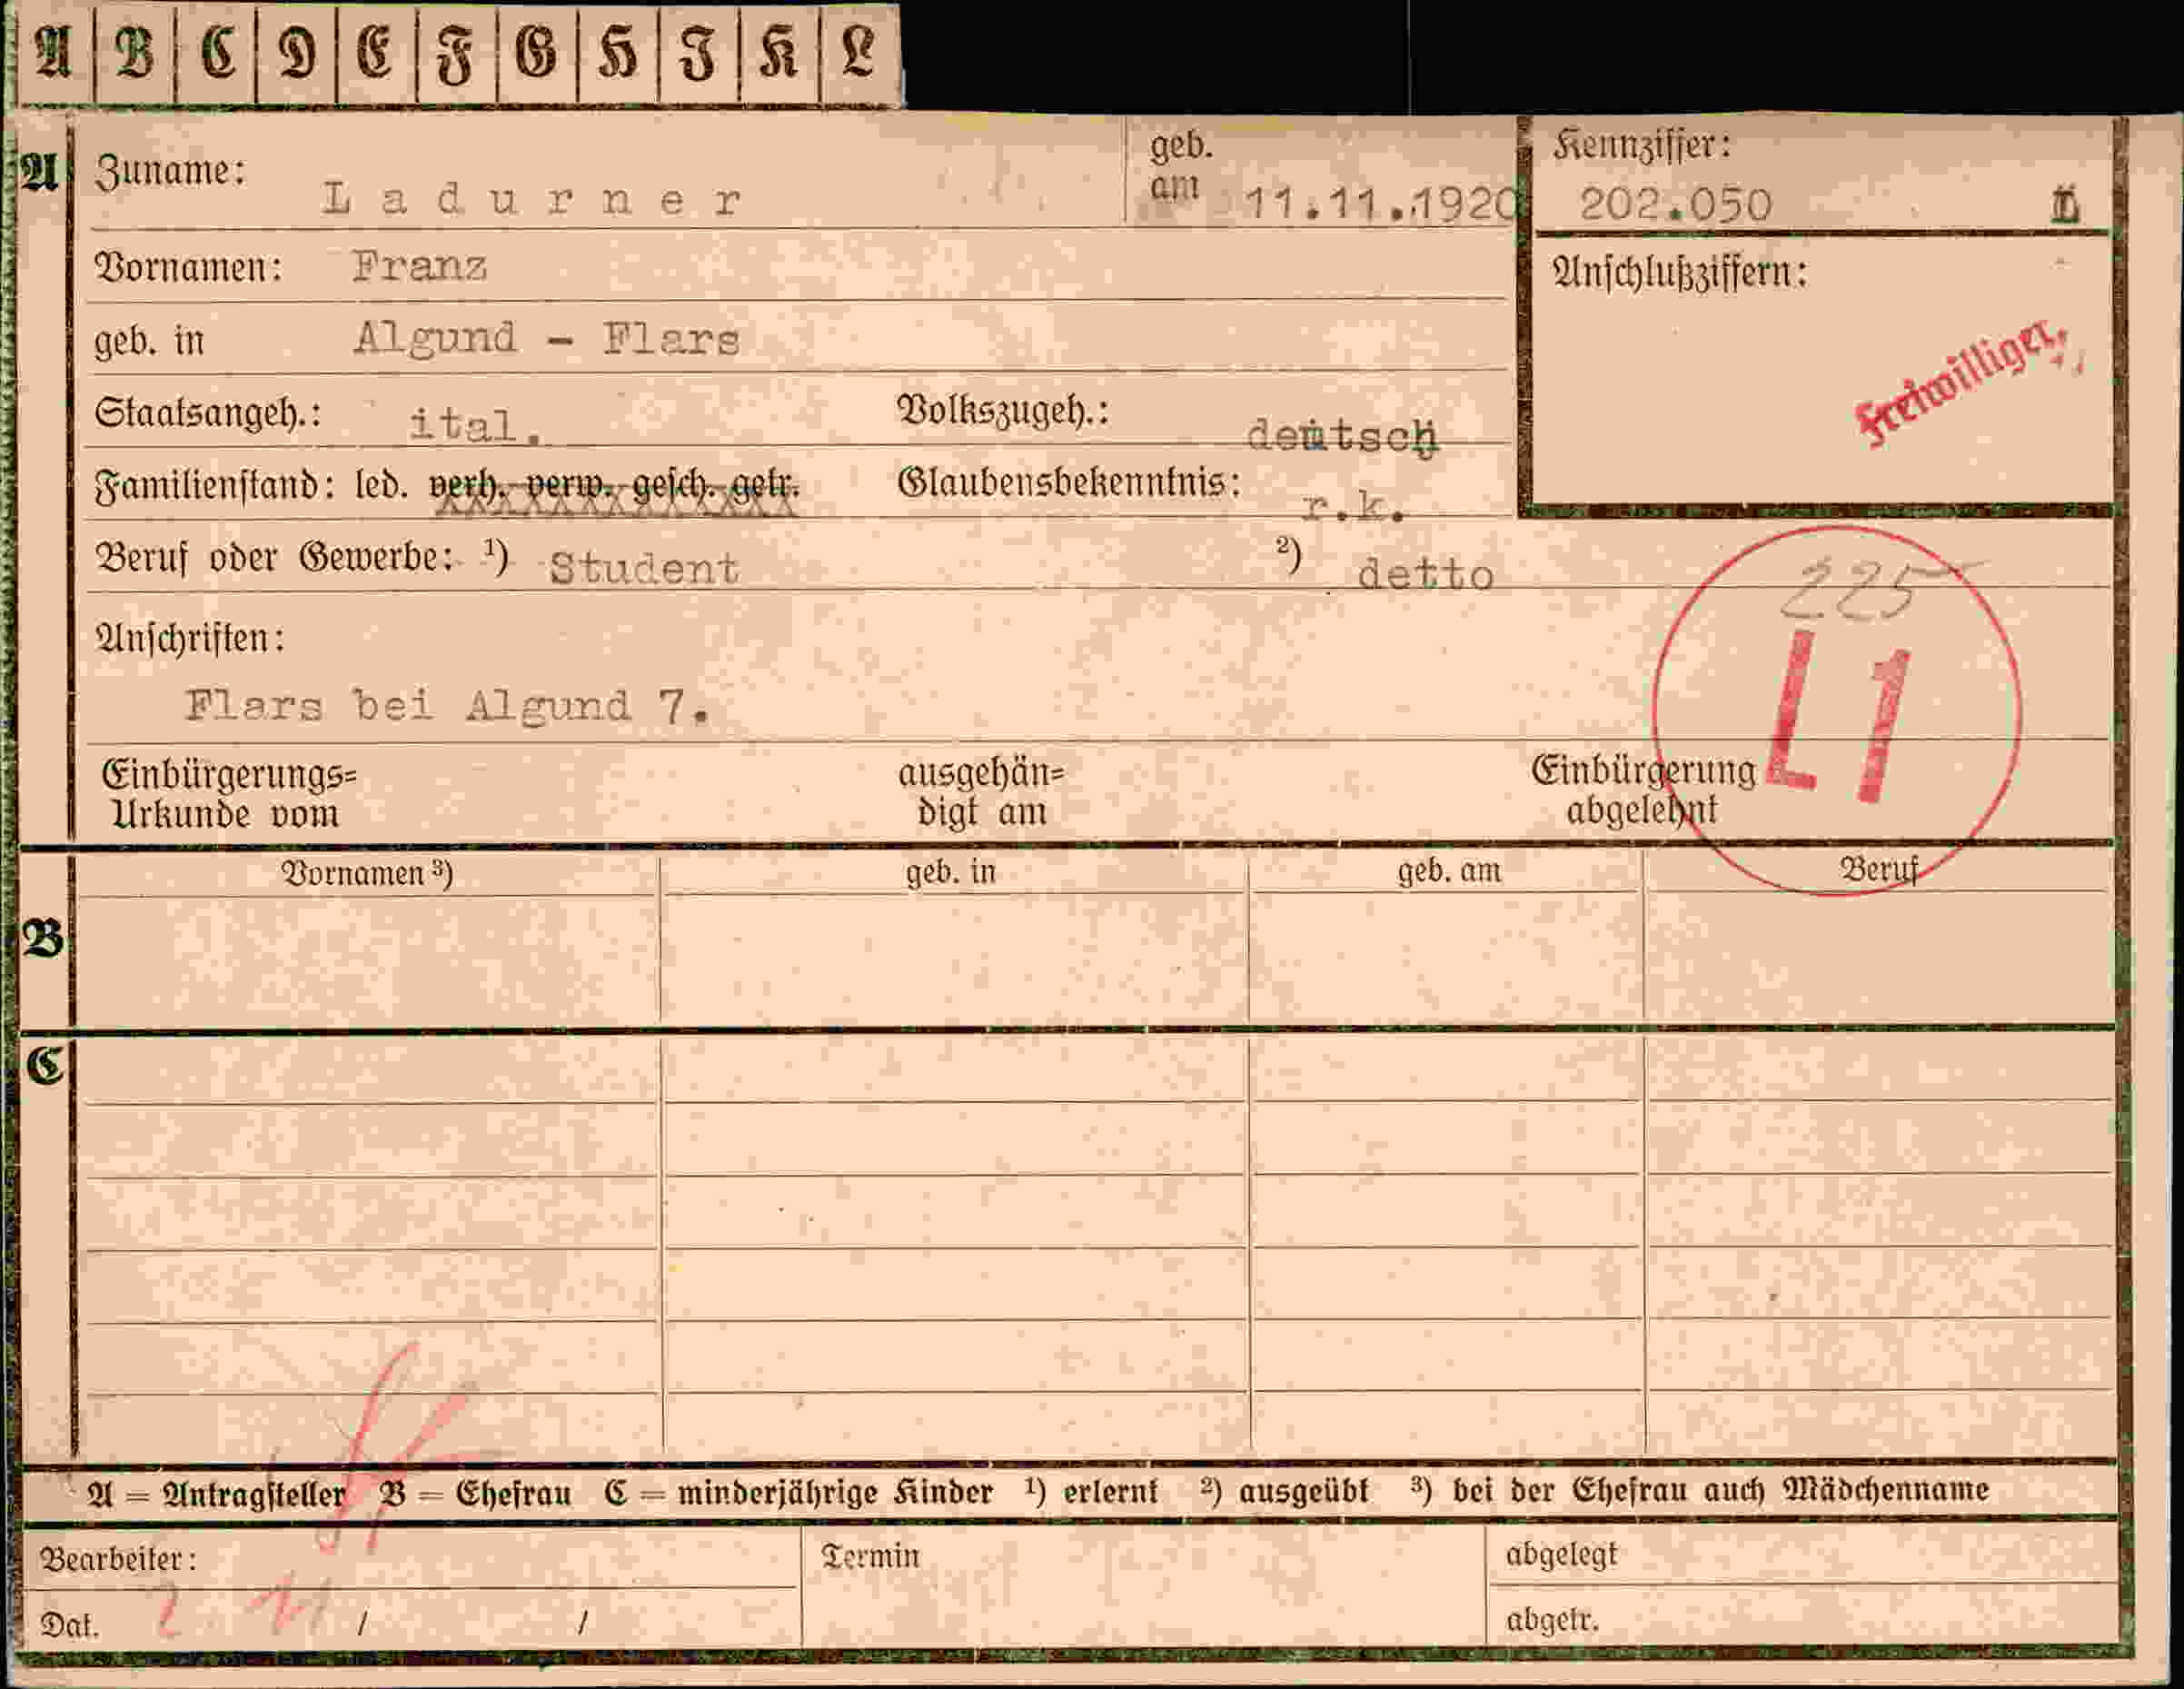 A B C D E F G H I K L
A Zuname: Ladurner geb. am 11.11.1920 Kennziffer: 202.050
Vornamen: Franz Anschlußziffern:
geb. in Algund - Flars Freiwilliger
Staatsangeh.: ital. Volkszugeh.: deutsch
Familienstand: led. verh. verw. gesch. getr. Glaubensbekenntnis: r.k.
Beruf oder Gewerbe: ¹) Student ²) detto
225
Anschriften: L1
Flars bei Algund 7.
Einbürgerungs= ausgehän= Einbürgerung
Urkunde vom digt am abgelehnt
Vornamen ³) geb. in geb. am Beruf
B
C
A = Antragsteller B = Ehefrau C = minderjährige Kinder ¹) erlernt ²) ausgeübt ³) bei der Ehefrau auch Mädchenname
Bearbeiter: Termin abgelegt
Dat. / / abgetr.